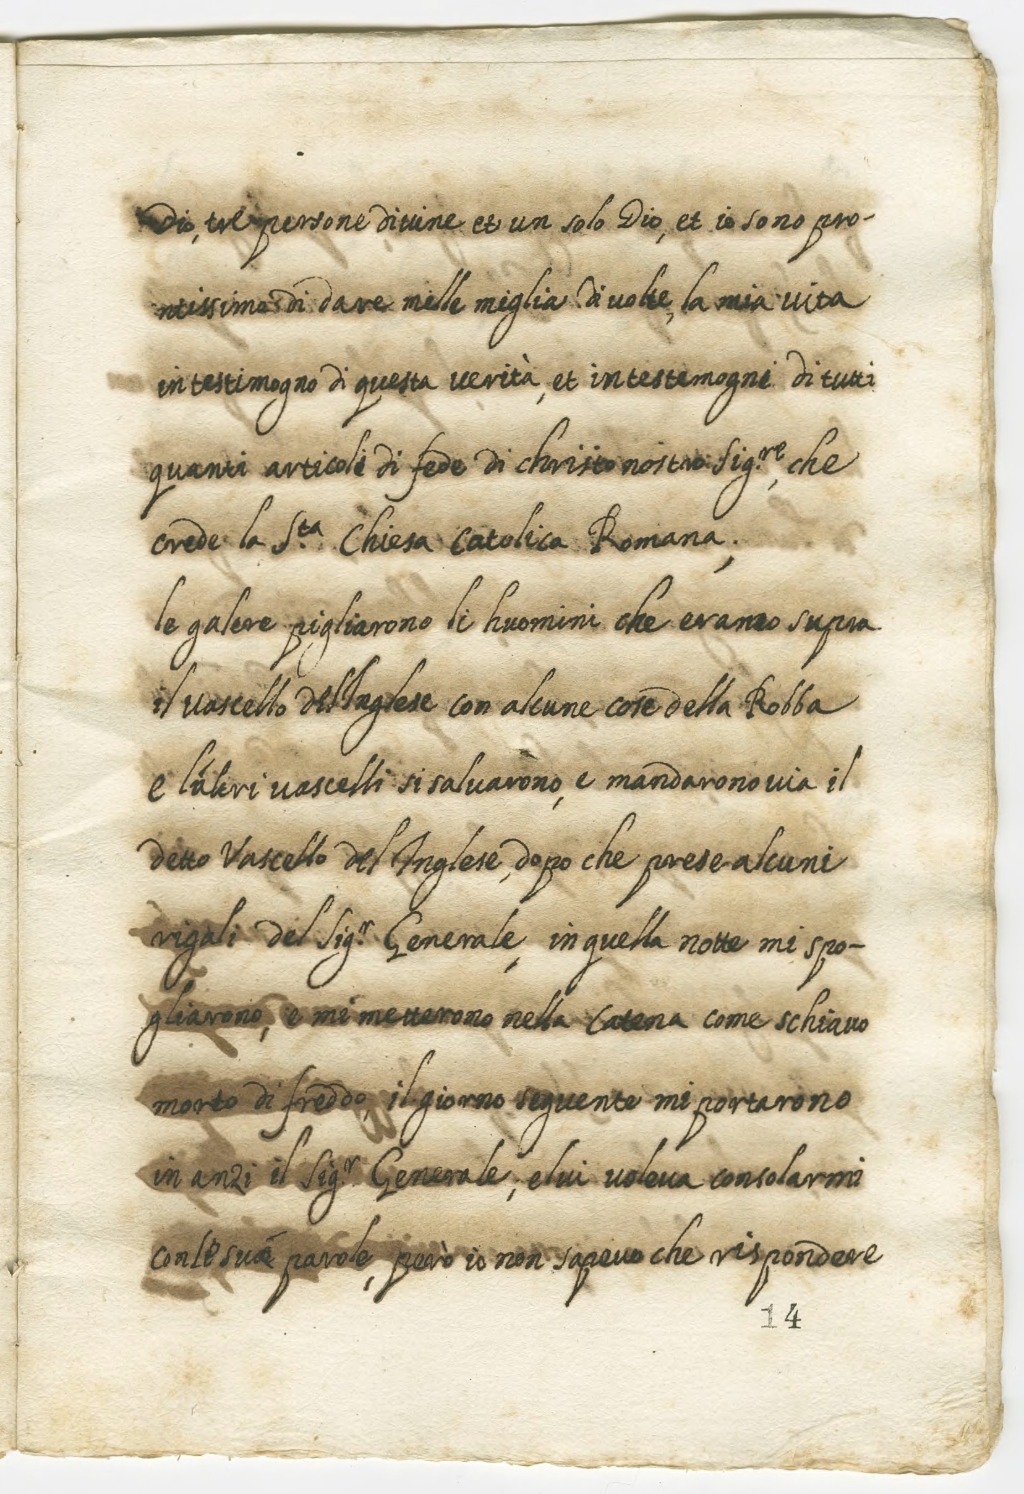 Dio, tre persone divine et un solo Dio, et io sono pro-
ntissimo di dare mille miglia di volte, la mia vita
in testimogno di questa verità, et in testemogni di tutti
quanti articoli di fede di christo nostro Sig.re, che
crede la S.ta Chiesa Catolica Romana;
le galere pigliarono li huomini che eranno supra
il vascello dell'Inglese con alcune cose della Robba
e l'alteri vascelli si salvarono, e mandarono via il
detto Vascello del Inglese, dopo che prese alcuni
rigali del Sig.r Generale, in quella notte mi spo-
gliarono, e mi metterono nella Catena come schiavo
morto di freddo, il giorno seguente mi portarono
in anzi il Sig.r Generale, e lui voleva consolarmi
con le sue parole, però io non sapevo che rispondere
14